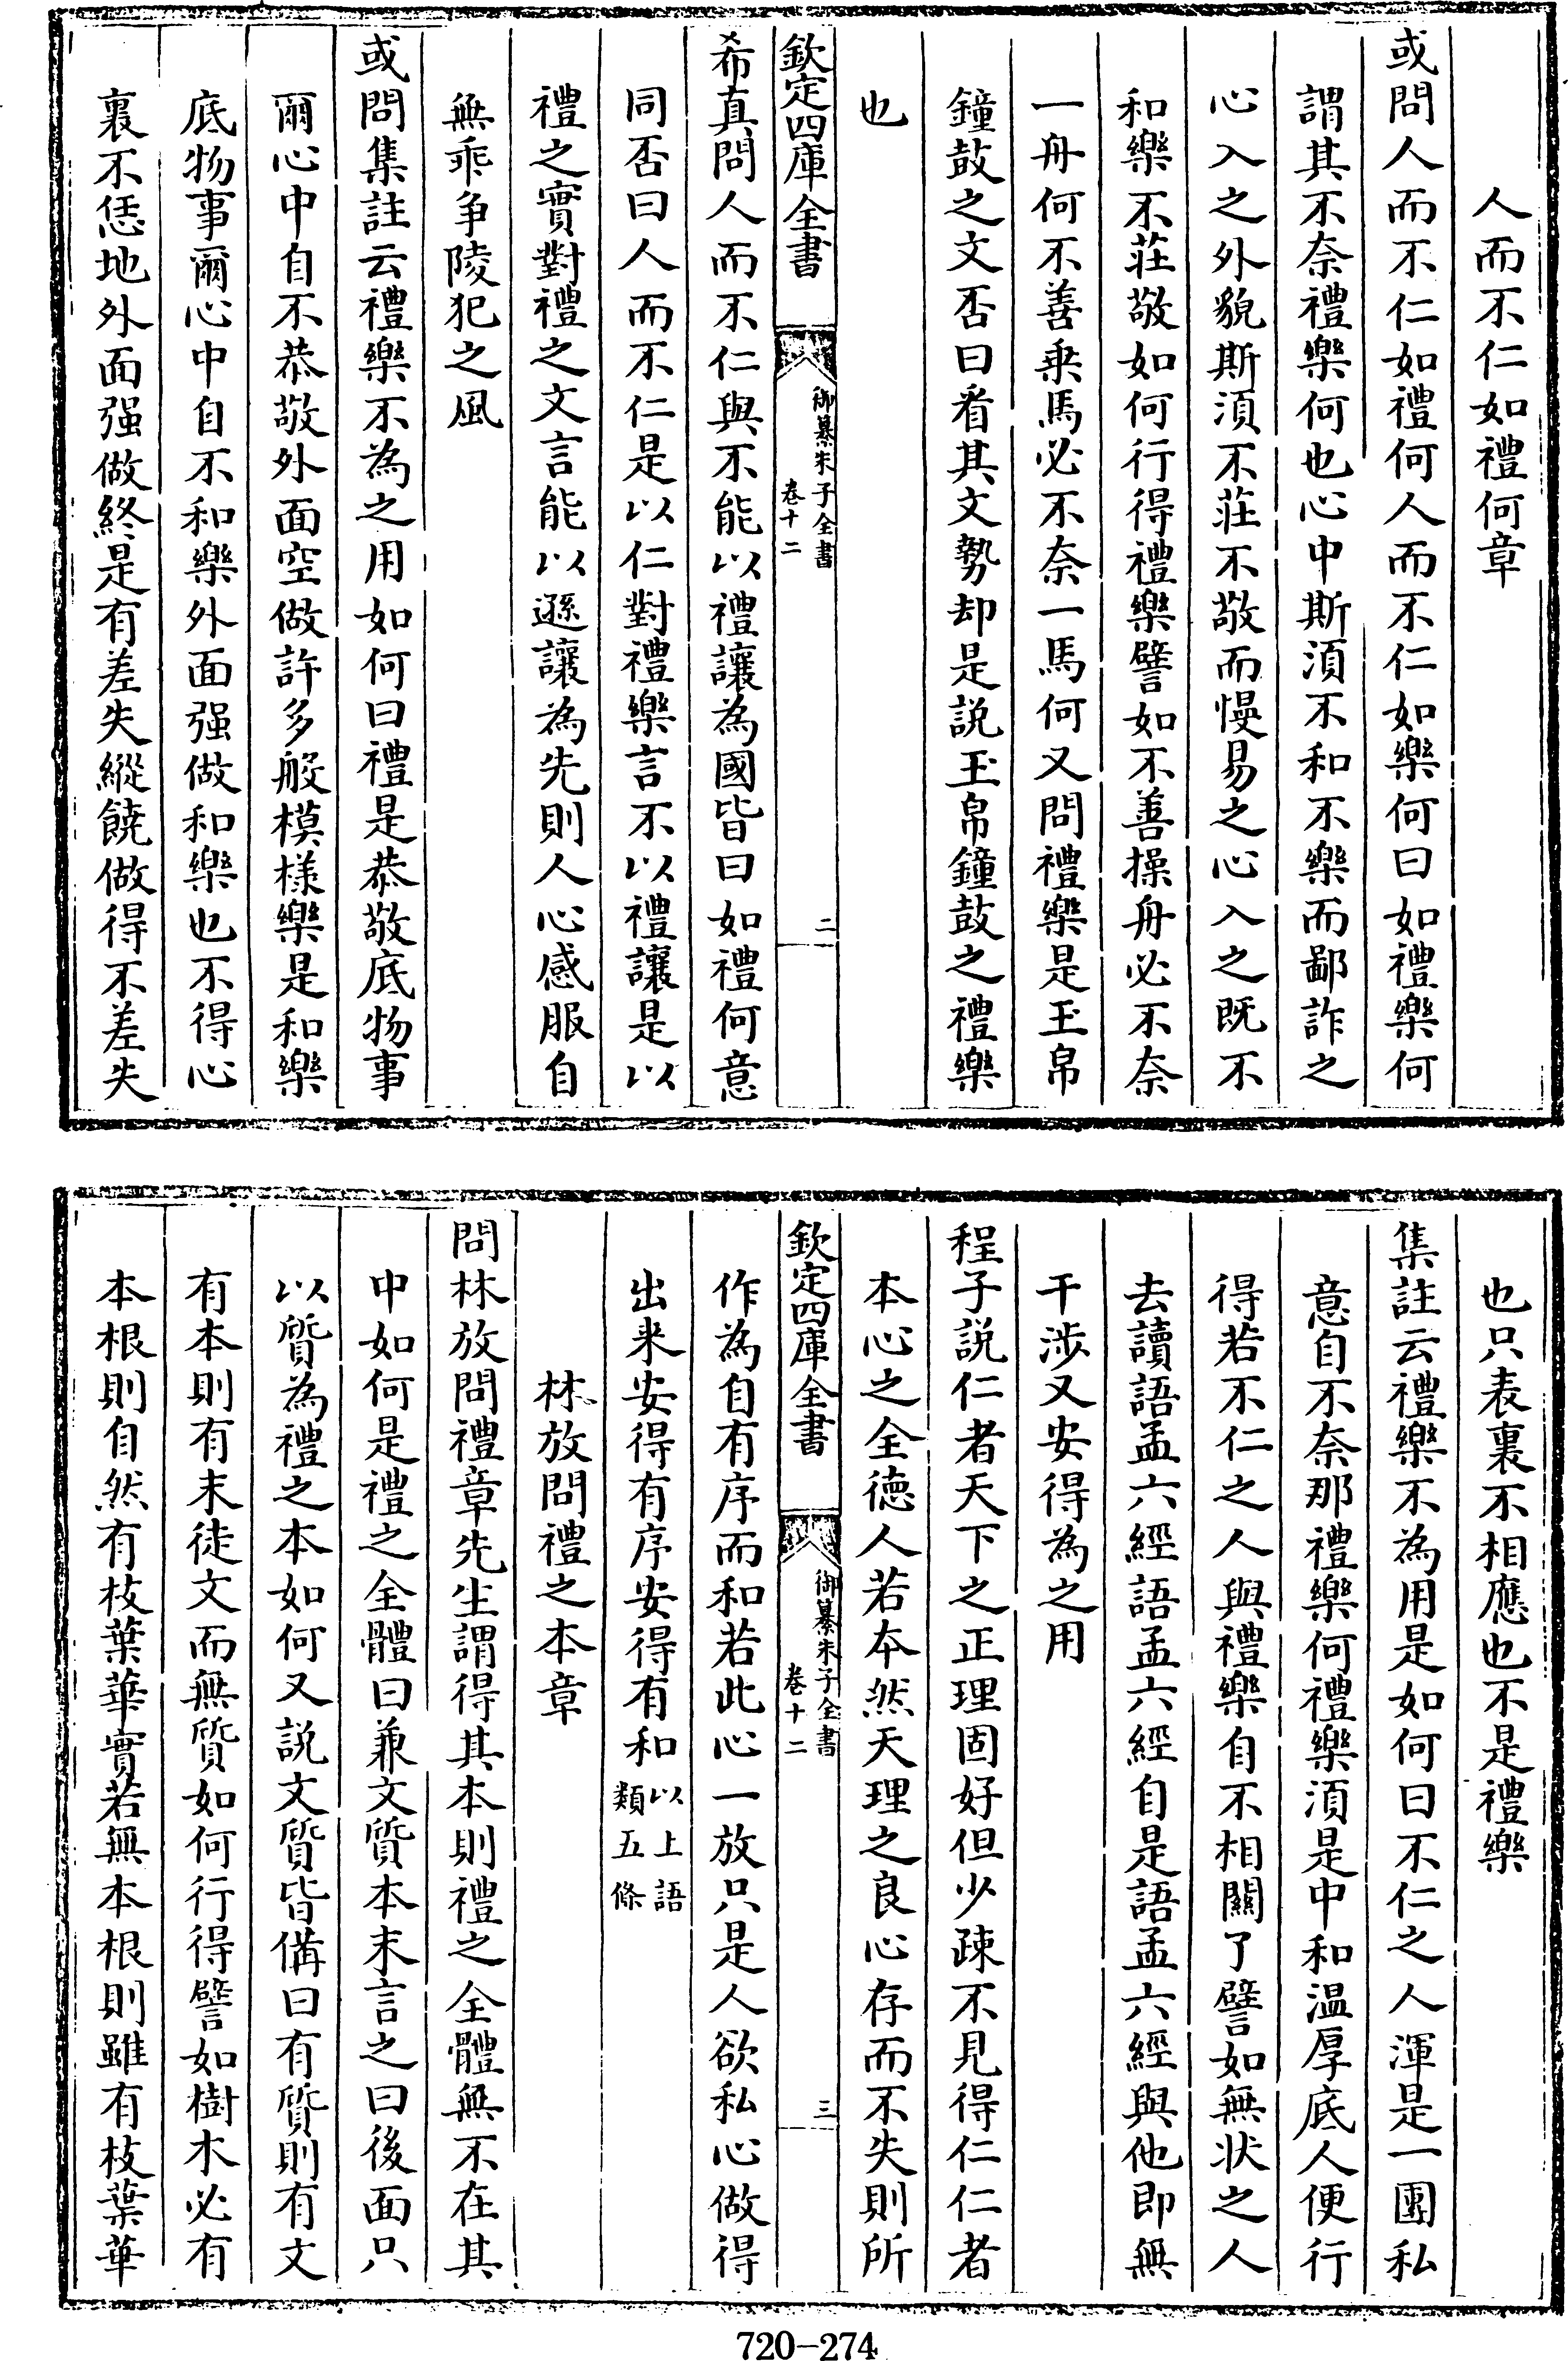 人而不仁如禮何章
或問人而不仁如禮何人而不仁如樂何曰如禮樂何
謂其不奈禮樂何也心中斯須不和不樂而鄙詐之
心入之外貌斯須不莊不敬而慢易之心入之既不
和樂不莊敬如何行得禮樂譬如不善操舟必不奈
一舟何不善乗馬必不奈一馬何又問禮樂是玉帛
鐘鼓之文否曰看其文勢却是説玉帛鐘鼓之禮樂
也
欽定四庫全書
御纂朱子全書
卷十二
二
希真問人而不仁與不能以禮讓為國皆曰如禮何意
同否曰人而不仁是以仁對禮樂言不以禮讓是以
禮之實對禮之文言能以遜讓為先則人心感服自
無乖争陵犯之風
或問集註云禮樂不為之用如何曰禮是恭敬底物事
爾心中自不恭敬外面空做許多般模様樂是和樂
底物事爾心中自不和樂外面强做和樂也不得心
裏不恁地外面强做終是有差失縱饒做得不差失
也只表裏不相應也不是禮樂
集註云禮樂不為用是如何曰不仁之人渾是一團私
意自不奈那禮樂何禮樂須是中和温厚底人便行
得若不仁之人與禮樂自不相關了譬如無状之人
去讀語孟六經語孟六經自是語孟六經與他即無
干涉又安得為之用
程子説仁者天下之正理固好但少疎不見得仁仁者
本心之全德人若本然天理之良心存而不失則所
欽定四庫全書
御纂朱子全書
卷十二
三
作為自有序而和若此心一放只是人欲私心做得
出来安得有序安得有和以上語類五條
林放問禮之本章
問林放問禮章先生謂得其本則禮之全體無不在其
中如何是禮之全體曰兼文質本末言之曰後面只
以質為禮之本如何又説文質皆備曰有質則有文
有本則有末徒文而無質如何行得譬如樹木必有
本根則自然有枝葉華實若無本根則雖有枝葉華
720-274